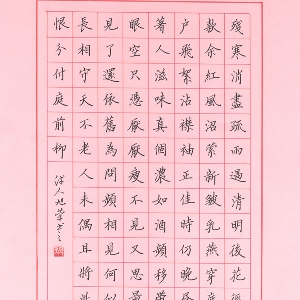 殘寒消盡疏雨過清明後花徑
斂余紅風沼縈新皺乳燕穿庭
戶飛絮沾襟袖正佳時仍晚晝
著人滋味真個濃如酒頻移帶
眼空只恁厭厭瘦不見又思量
見了還依舊為問頻相見何似
長相守天不老人未偶且將此
恨分付庭前柳